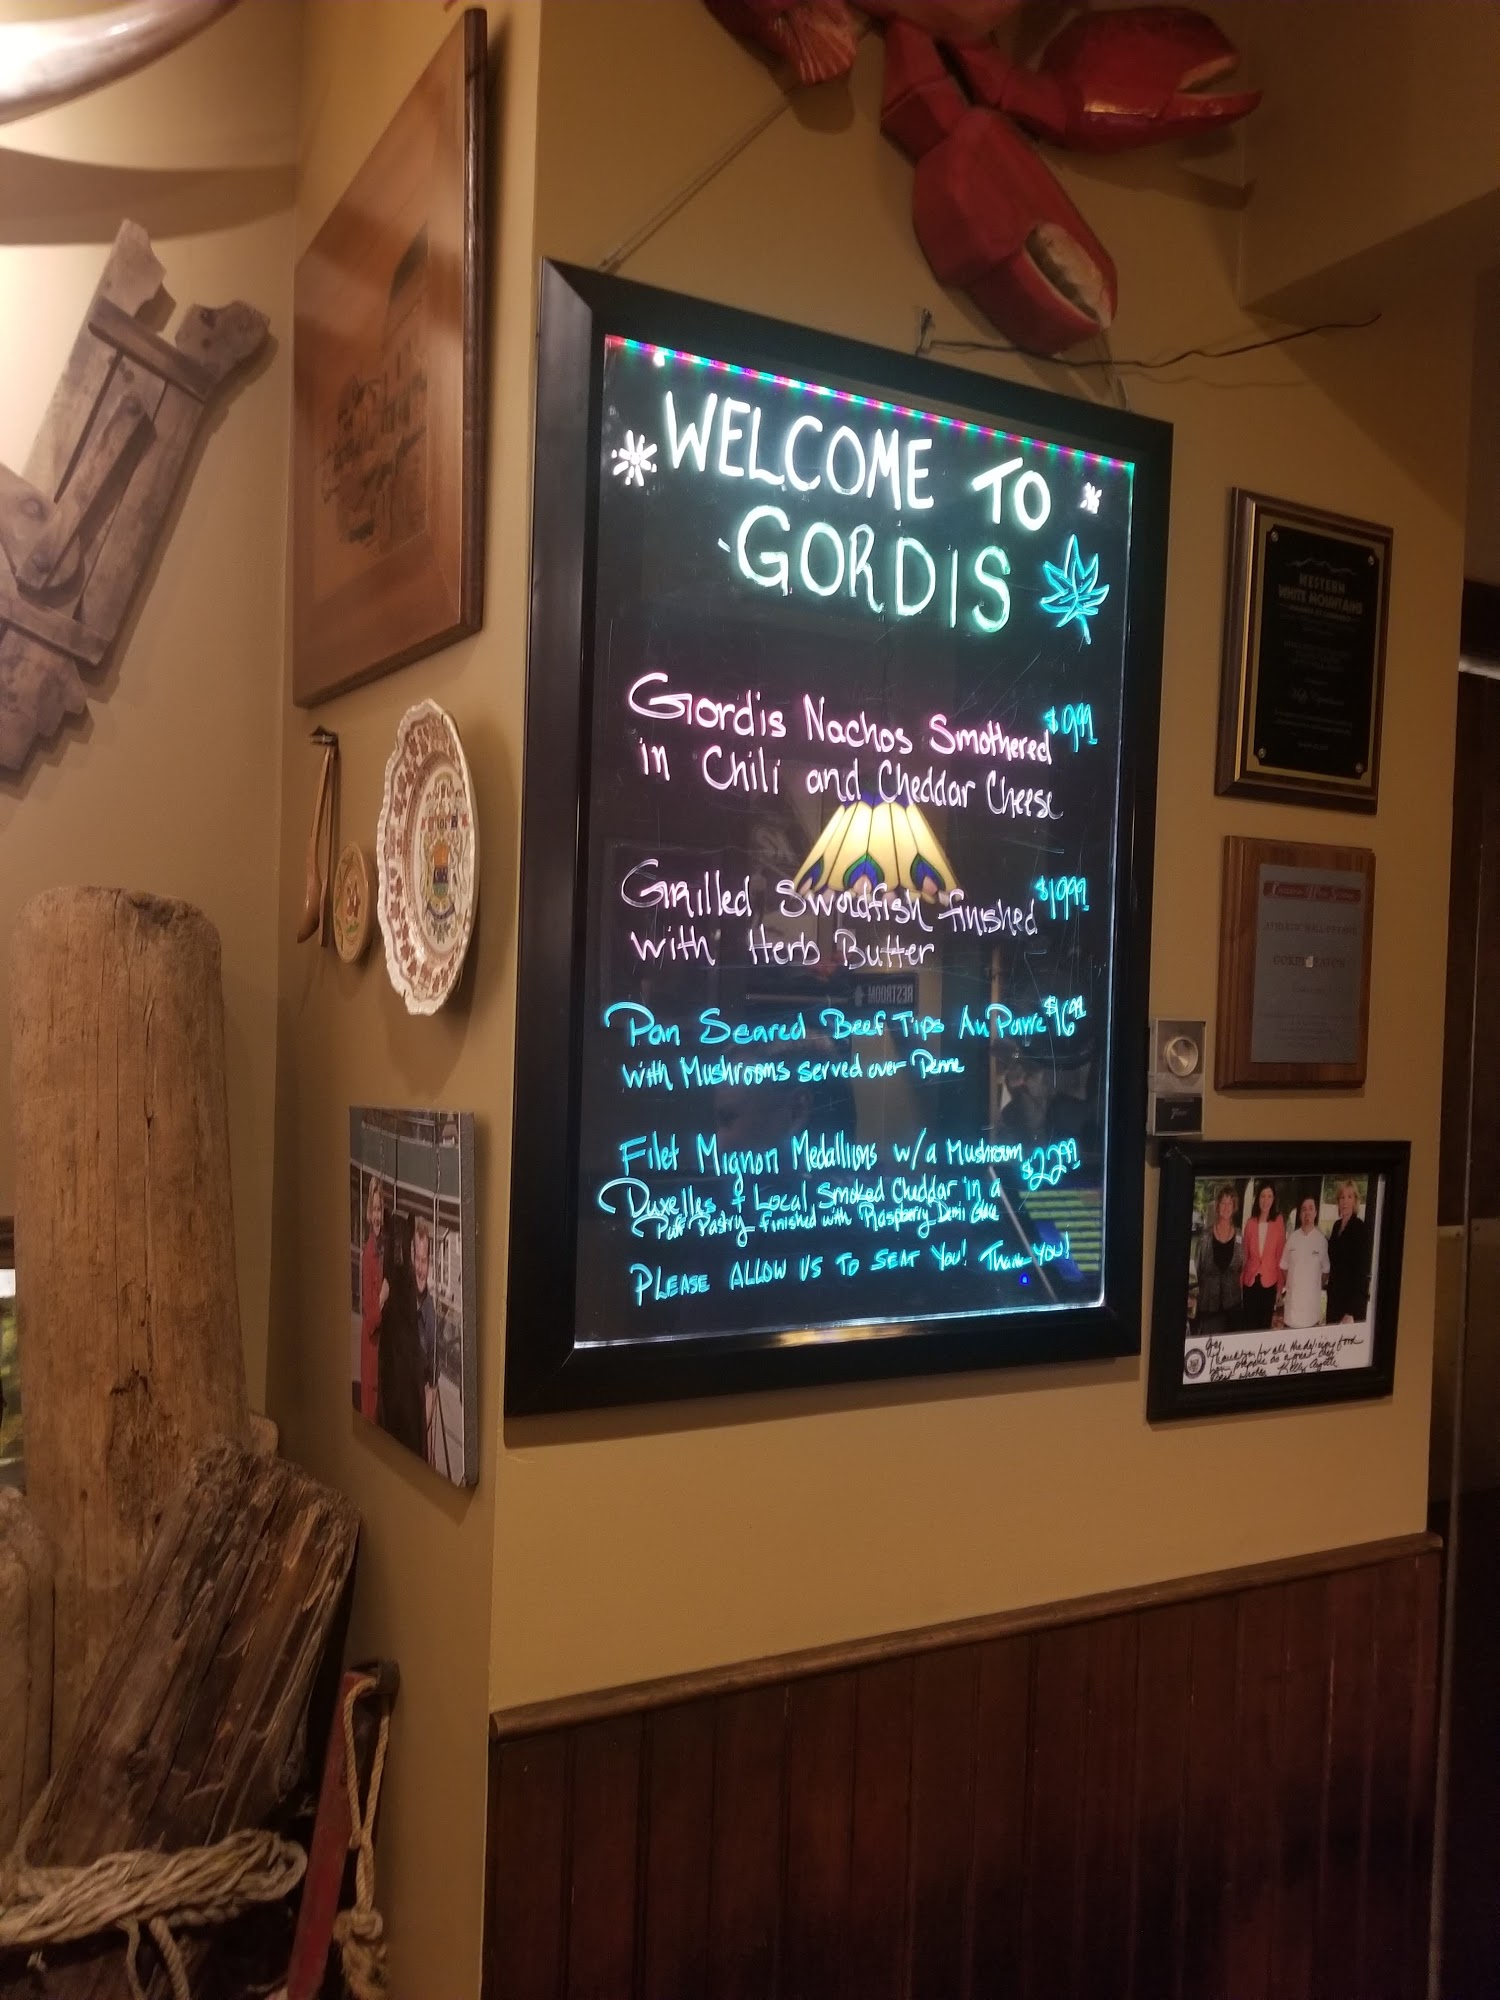 WELCOME TO
GORDIS
Gordis Nachos Smothered $9.99
in Chili and Cheddar Cheese
Grilled Swordfish finished $19.99
with Herb Butter
Pan Seared Beef Tips Au Poivre $16.99
with Mushrooms served over Penne
Filet Mignon Medallions w/a Mushroom $22.99
Duxelles + Local Smoked Cheddar in a
Puff Pastry finished with Raspberry Demi Glace
PLEASE ALLOW US TO SEAT YOU! THANK YOU!
RESTROOM
WESTERN
WHITE MOUNTAINS
ATHLETIC HALL OF FAME
Thank you for all the delicious food
Best wishes Kelly Ayotte